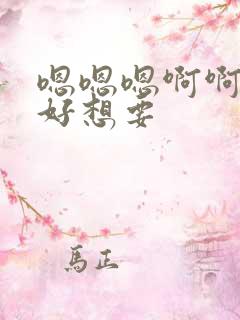 嗯嗯嗯啊啊
好想要
馬正